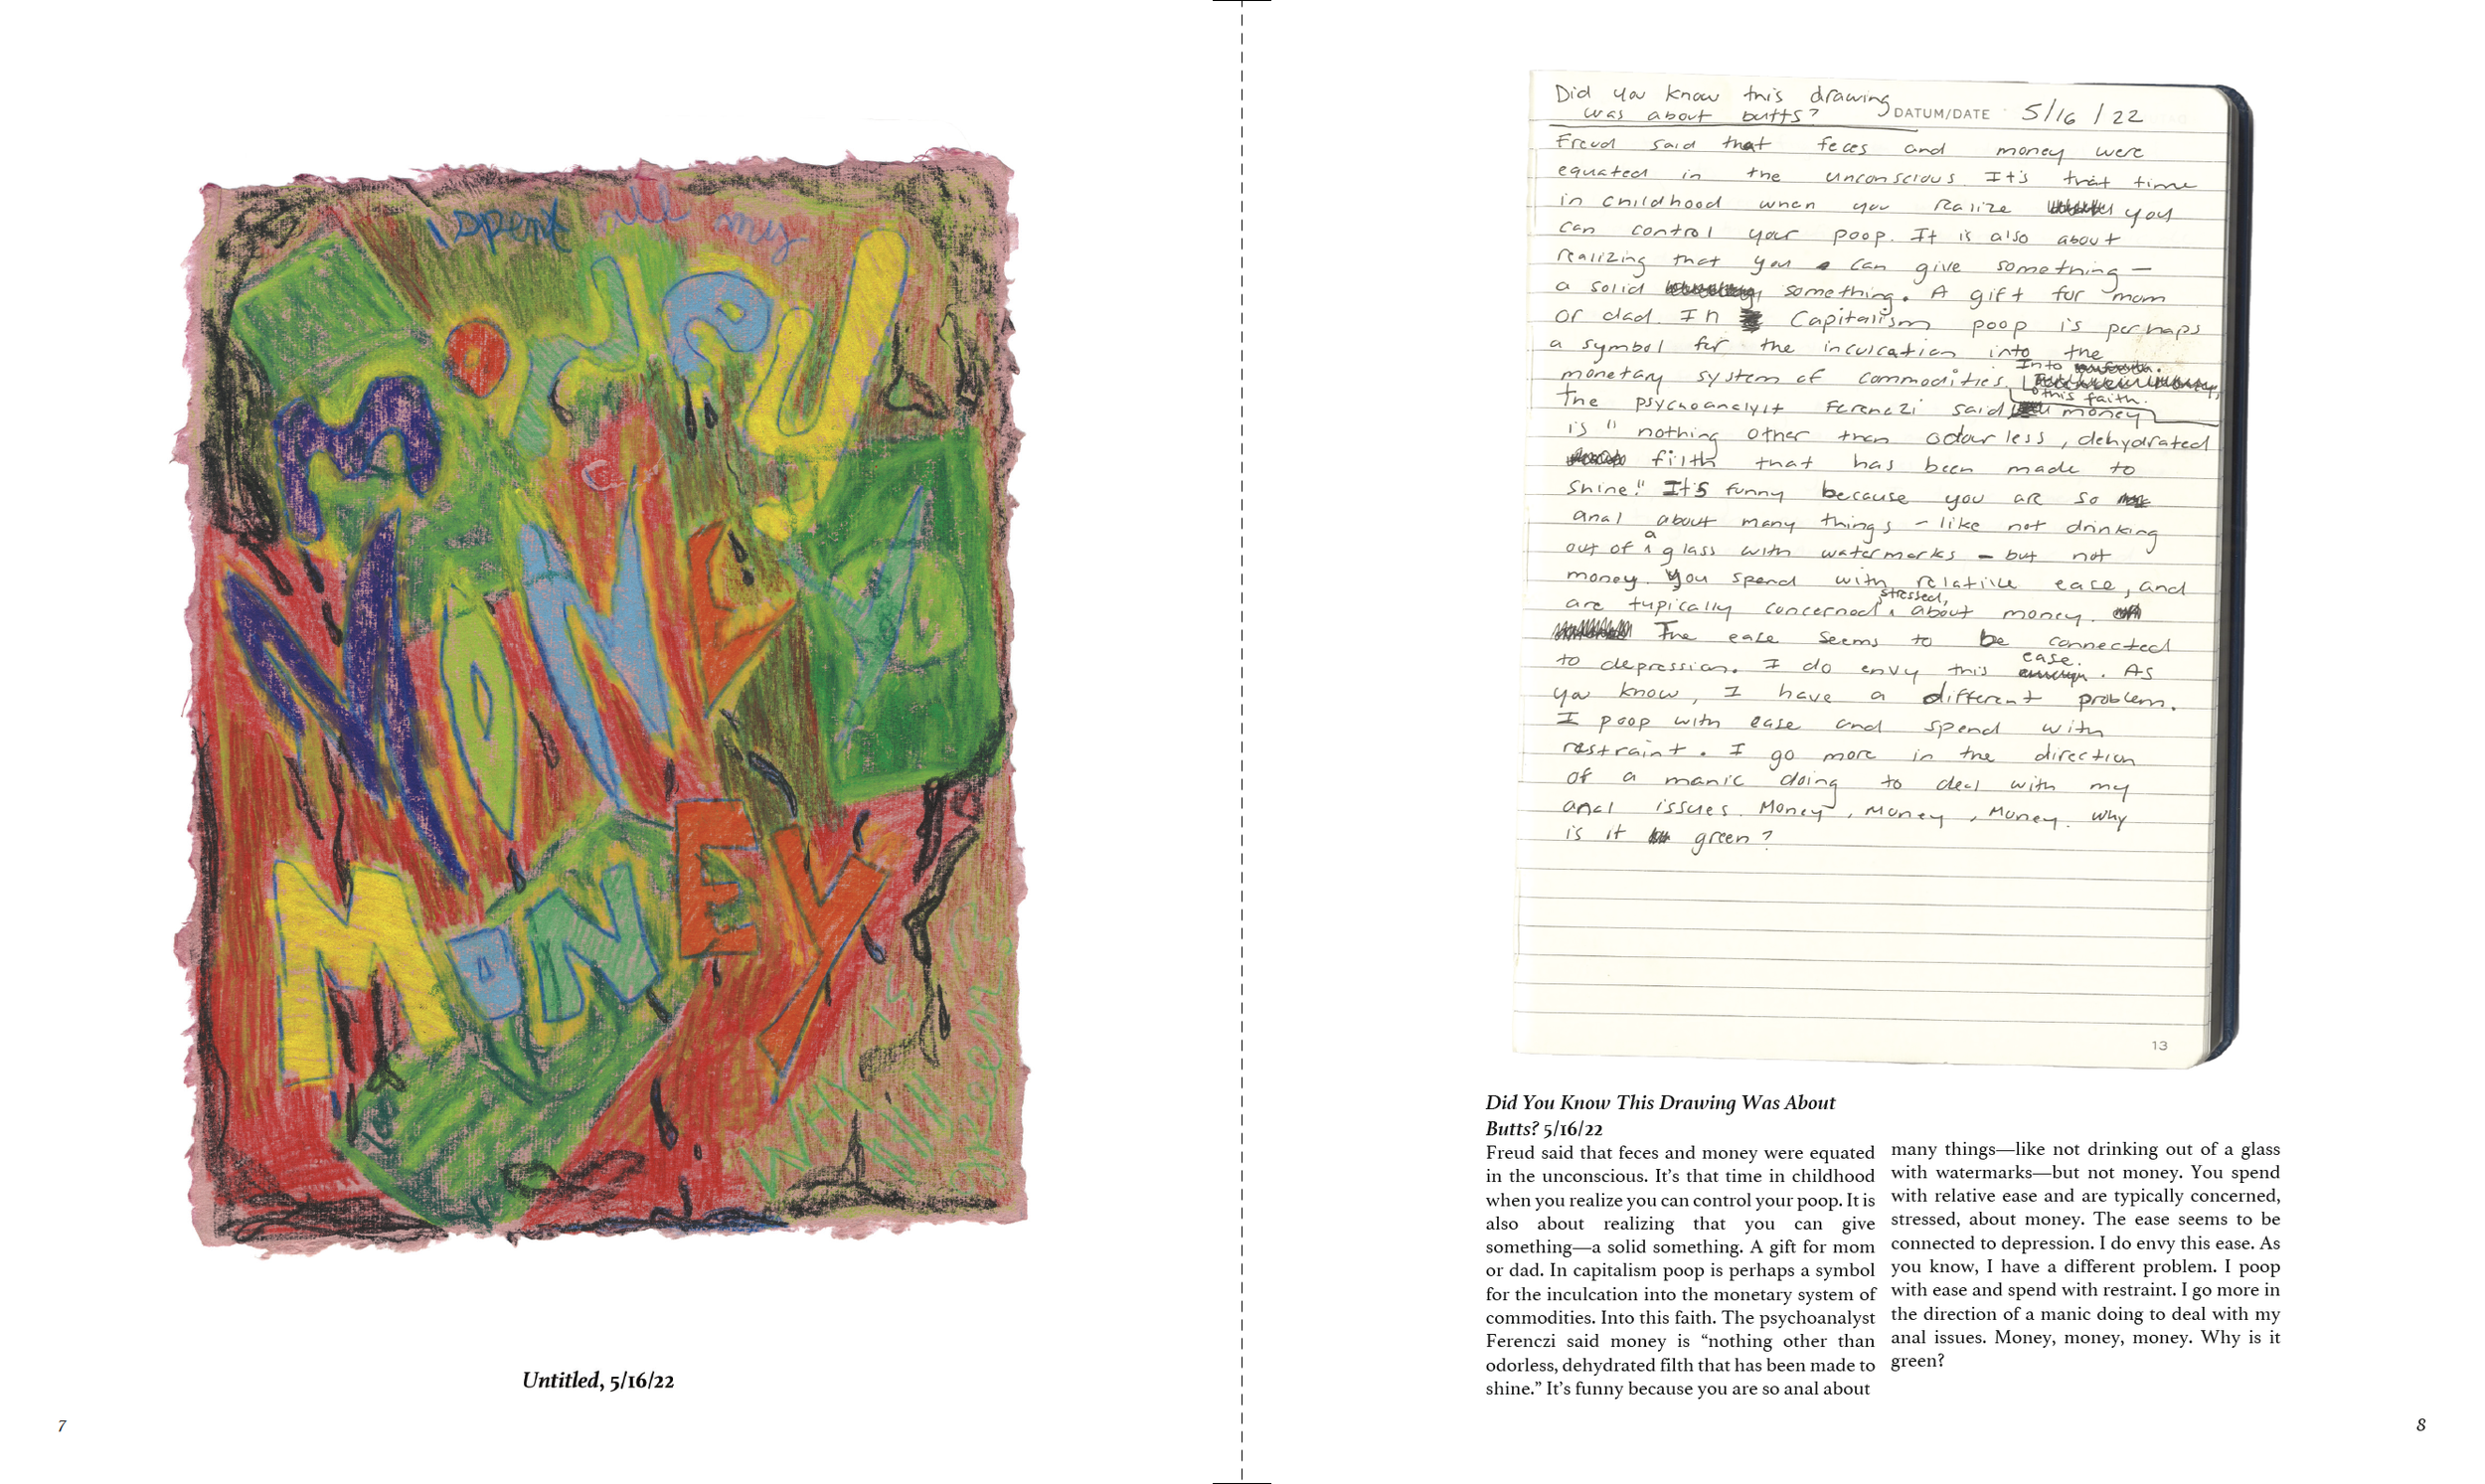 I spent all my
money
on
MONEY
MONEY
WHY IS
it all
green?
Untitled, 5/16/22
7
Did you know this drawing
was about butts?
DATUM/DATE 5/16/22
Freud said that feces and money were
equated in the unconscious. It's that time
in childhood when you realize you
can control your poop. It is also about
realizing that you can give something —
a solid something. A gift for mom
or dad. In Capitalism poop is perhaps
a symbol for the inculcation into the
monetary system of commodities. Into
this faith.
The psychoanalyst Ferenczi said money
is "nothing other than odourless, dehydrated
filth that has been made to
shine." It's funny because you are so
anal about many things – like not drinking
out of a glass with watermarks – but not
money. You spend with relative ease, and
are typically concerned, stressed, about money.
The ease seems to be connected
to depression. I do envy this ease. As
you know, I have a different problem.
I poop with ease and spend with
restraint. I go more in the direction
of a manic doing to deal with my
anal issues. Money, Money, Money. Why
is it green?
13
Did You Know This Drawing Was About
Butts? 5/16/22
Freud said that feces and money were equated
in the unconscious. It's that time in childhood
when you realize you can control your poop. It is
also about realizing that you can give
something—a solid something. A gift for mom
or dad. In capitalism poop is perhaps a symbol
for the inculcation into the monetary system of
commodities. Into this faith. The psychoanalyst
Ferenczi said money is “nothing other than
odorless, dehydrated filth that has been made to
shine.” It's funny because you are so anal about
many things—like not drinking out of a glass
with watermarks—but not money. You spend
with relative ease and are typically concerned,
stressed, about money. The ease seems to be
connected to depression. I do envy this ease. As
you know, I have a different problem. I poop
with ease and spend with restraint. I go more in
the direction of a manic doing to deal with my
anal issues. Money, money, money. Why is it
green?
8